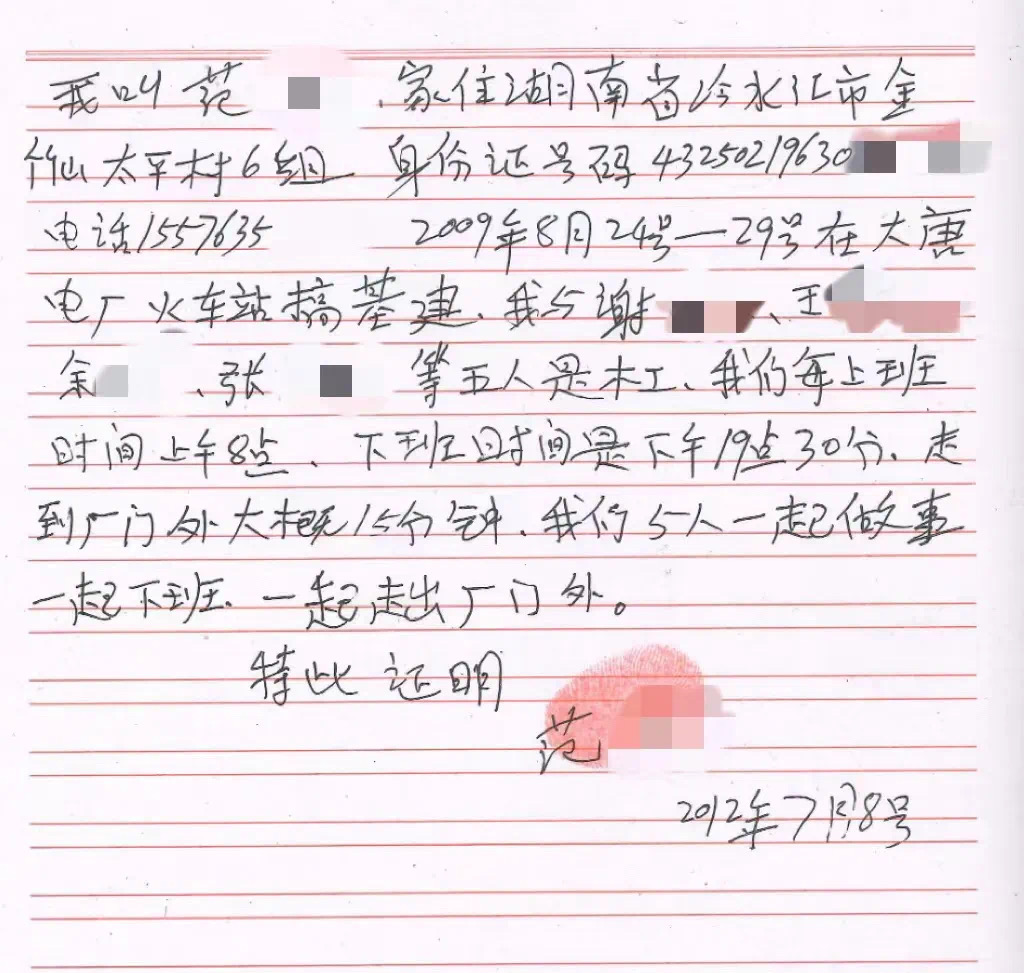 我叫范 、家住湖南省冷水江市金
竹山太平村6组 身份证号码43250219630
电话1557635 2009年8月24号—29号在大唐
电厂火车站搞基建、我与谢 、王
余 、张 等五人是木工、我们每上班
时间上午8点、下班时间是下午19点30分、走
到厂门外大概15分钟、我们5人一起做事
一起下班、一起走出厂门外。
特此证明
范
2012年7月8号